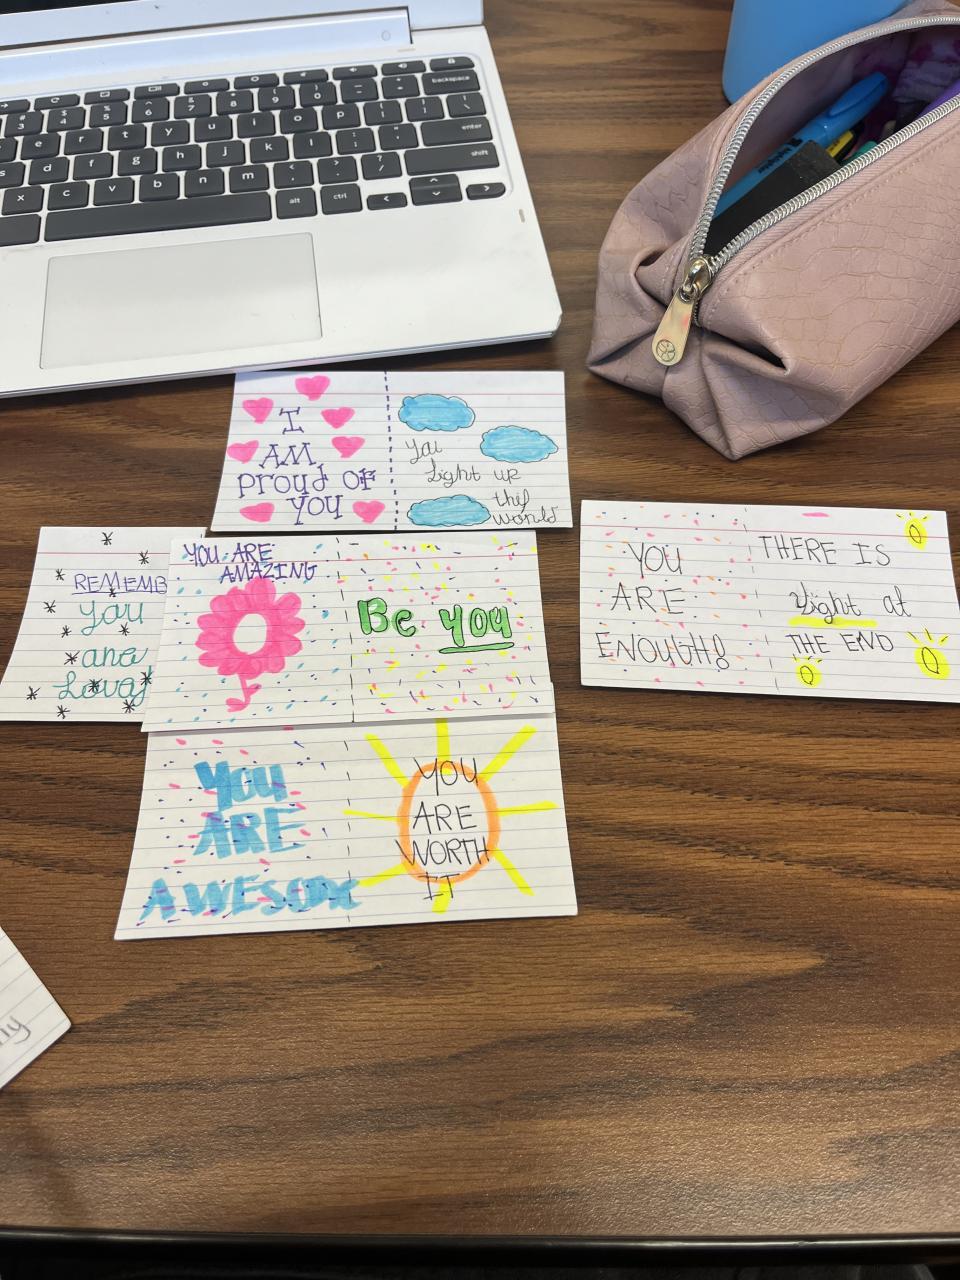 backspace
enter
shift
alt
ctrl
I
AM
proud of
you
You
light up
this
world
REMEMB
you
are
YOU ARE
AMAZING
Be you
YOU
ARE
ENOUGH!
THERE IS
light at
THE END
YOU
ARE
AWESOME
YOU
ARE
WORTH
IT